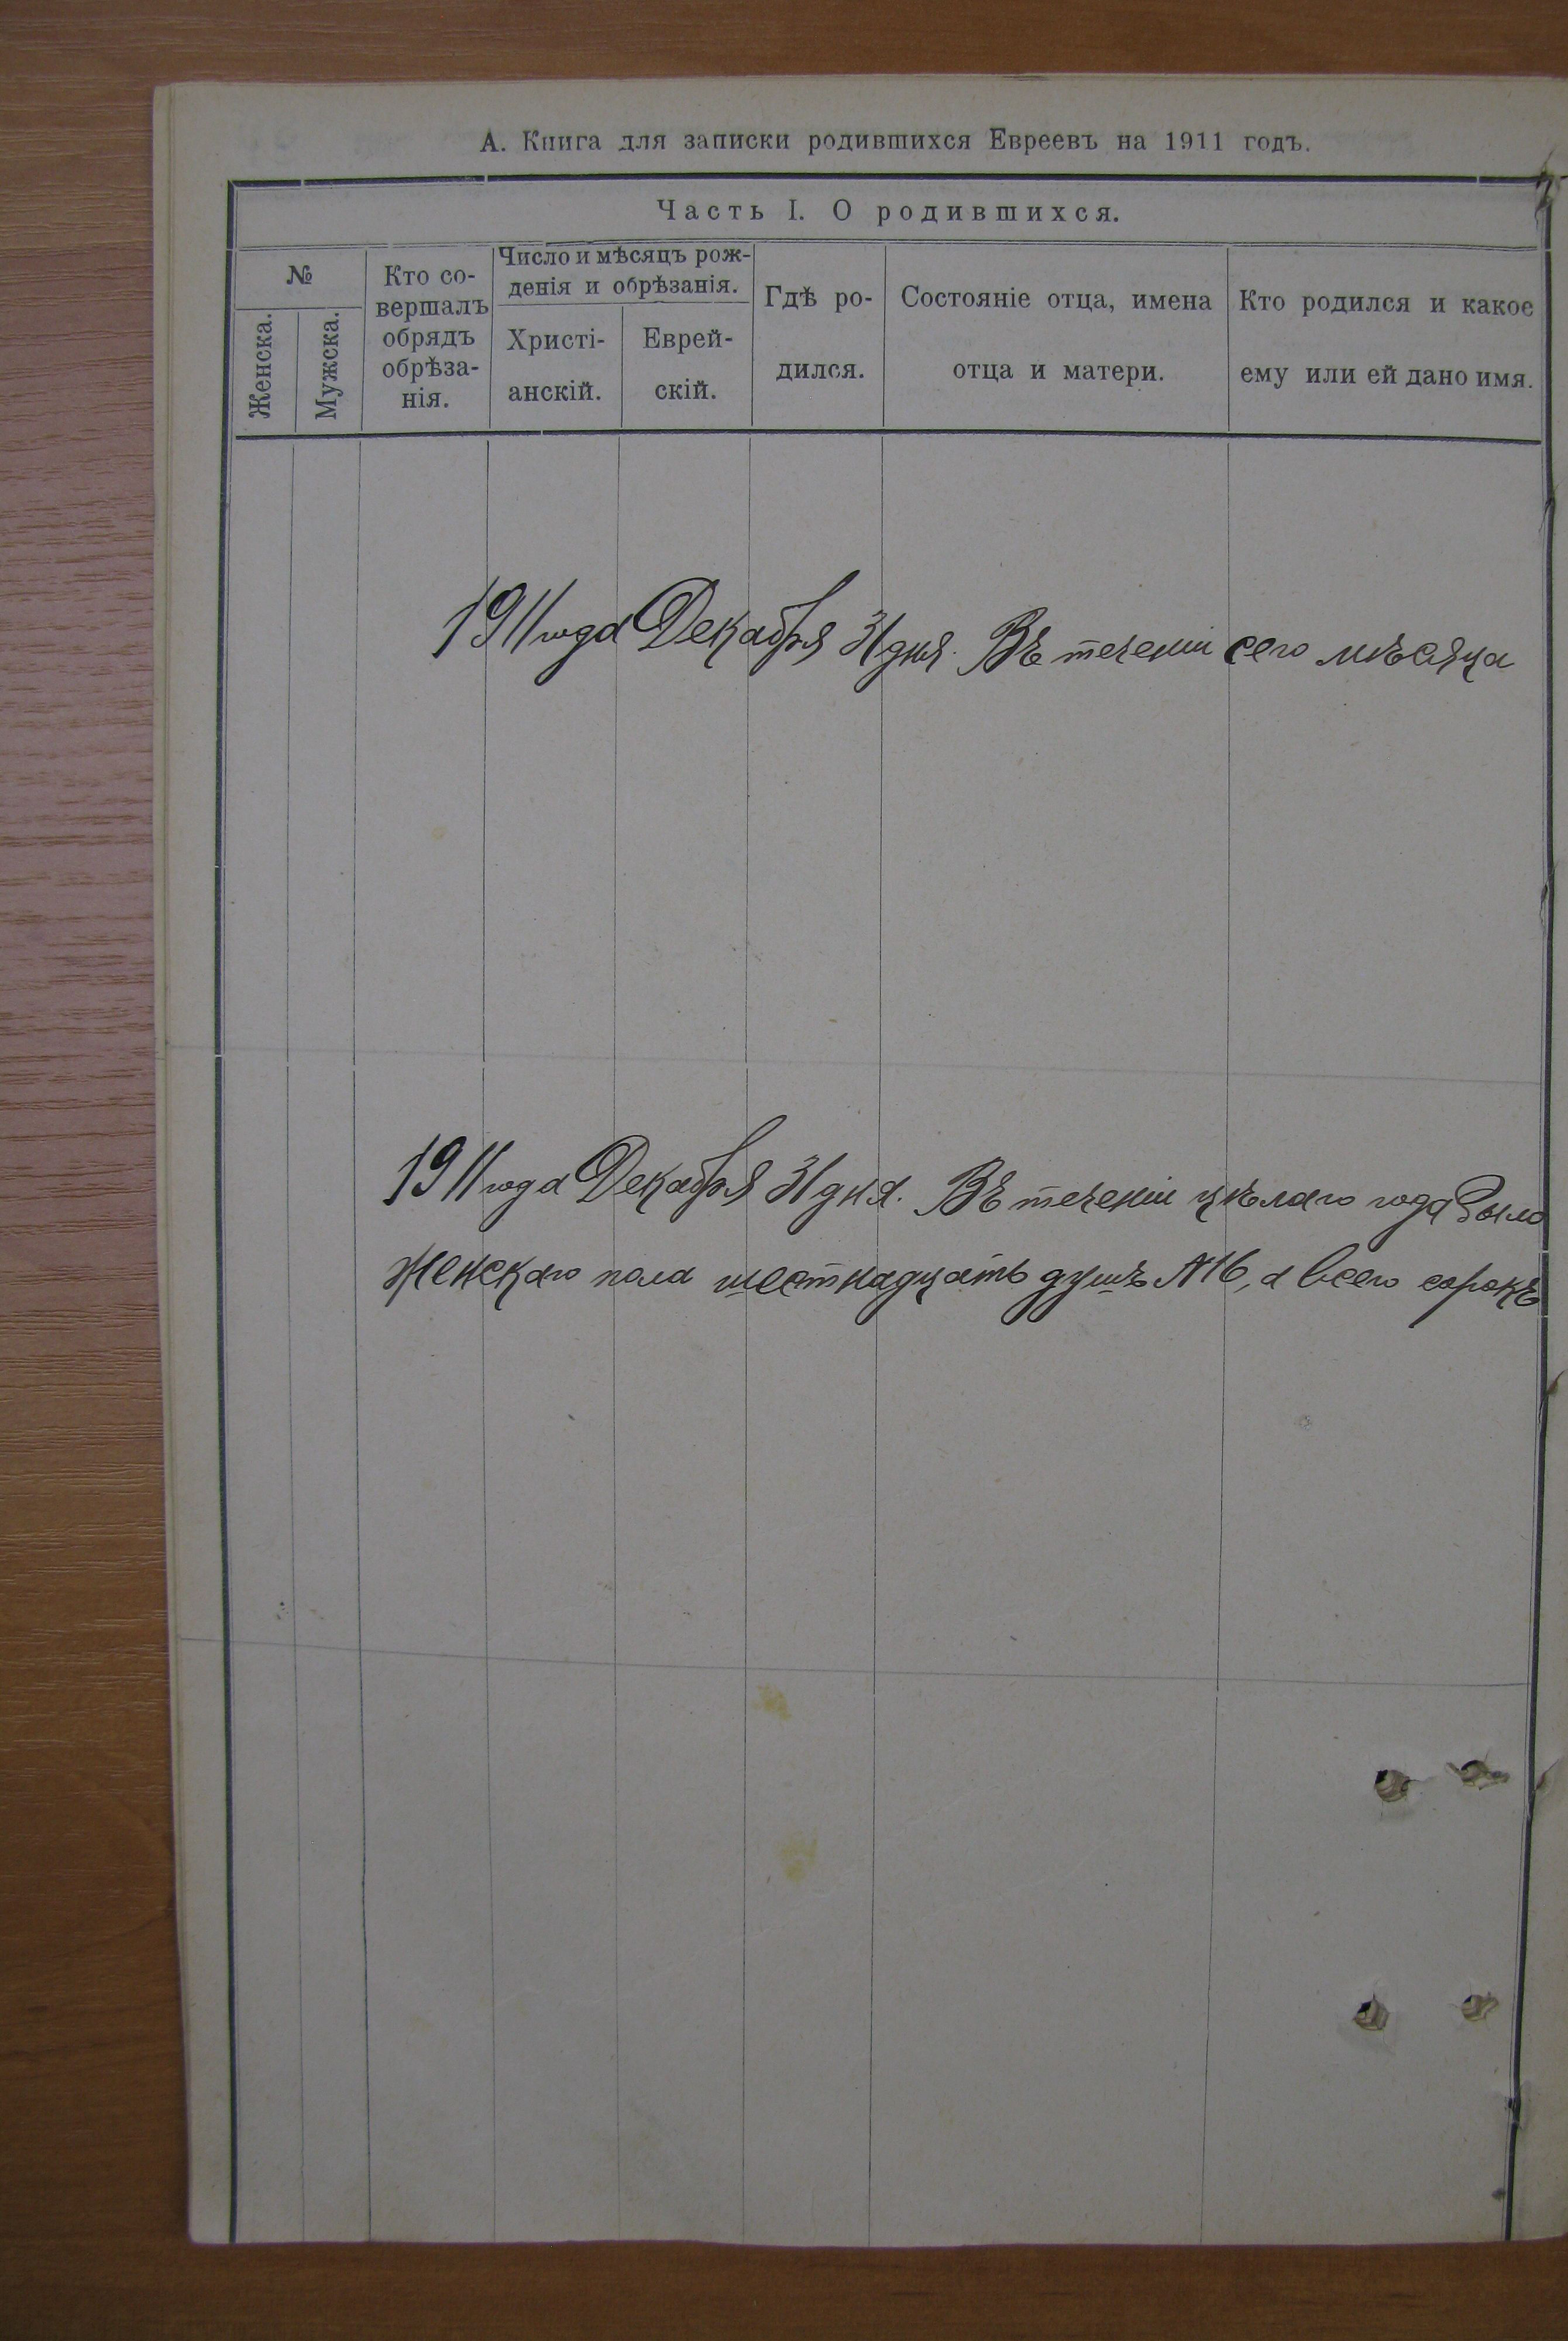 А. Книга для записки родившихся Евреевъ на 1911 годъ.
Часть I. О родившихся.
№
Женска.
Мужска.
Кто со-
вершалъ
обрядъ
обрѣза-
нія.
Число и мѣсяцъ рож-
денія и обрѣзанія.
Христі-
анскій.
Еврей-
скій.
Гдѣ ро-
дился.
Состояніе отца, имена
отца и матери.
Кто родился и какое
ему или ей дано имя.
1911 года Декабря 31 дня. Въ теченіи сего мѣсяца
1911 года Декабря 31 дня. Въ теченіи цѣлаго года было
женскаго пола шестнадцать душъ №16, а всего сорокъ